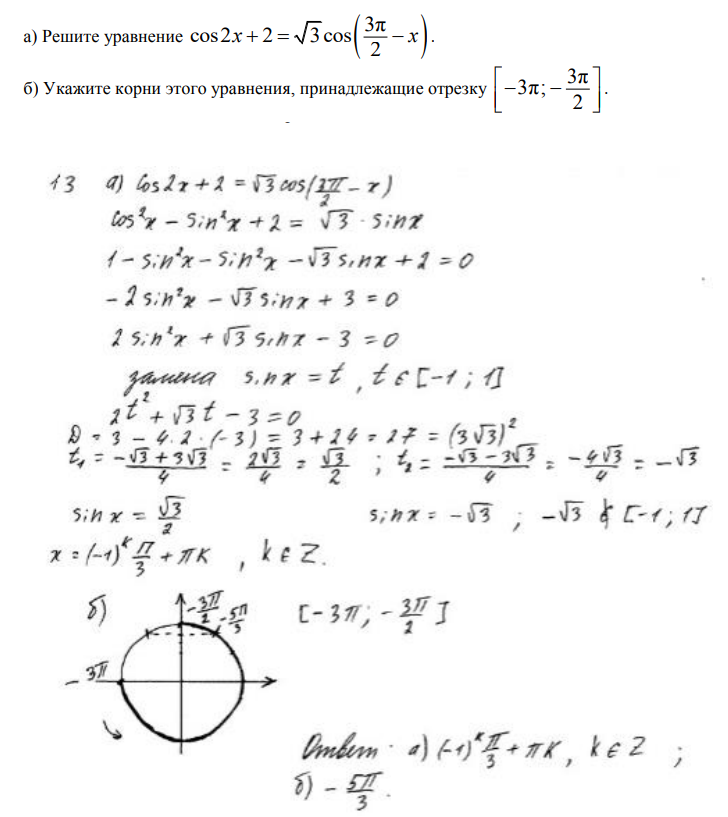 а) Решите уравнение cos2x + 2 = √3 cos(3π/2 − x).
б) Укажите корни этого уравнения, принадлежащие отрезку [−3π; −3π/2].
13 а) cos2x + 2 = √3 cos(3π/2 − x)
cos²x − sin²x + 2 = √3 · sinx
1 − sin²x − sin²x − √3 sinx + 2 = 0
−2 sin²x − √3 sinx + 3 = 0
2 sin²x + √3 sinx − 3 = 0
замена sinx = t, t ∈ [−1; 1]
2t² + √3 t − 3 = 0
D = 3 − 4·2·(−3) = 3 + 24 = 27 = (3√3)²
t₁ = (−√3 + 3√3)/4 = 2√3/4 = √3/2 ; t₂ = (−√3 − 3√3)/4 = −4√3/4 = −√3
sinx = √3/2 sinx = −√3 ; −√3 ∉ [−1; 1]
x = (−1)^k π/3 + πk, k ∈ Z.
б) −3π/2 [−3π; −3π/2]
−5π/3
−3π
Ответ: а) (−1)^k π/3 + πk, k ∈ Z ;
б) −5π/3.